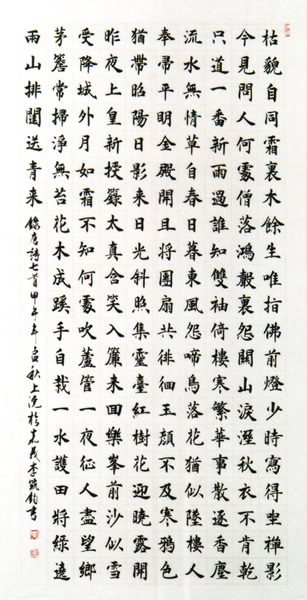 枯貌自同霜裏木餘生唯指佛前燈少時寫得坐禪影
今見問人何處僧落鴻聲裏怨關山淚溼秋衣不肯乾
只道一番新雨過誰知雙袖倚樓寒繁華事散逐香塵
流水無情草自春日暮東風怨啼鳥落花猶似墜樓人
奉帚平明金殿開且將團扇共徘徊玉顏不及寒鴉色
猶帶昭陽日影來日光斜照集靈臺紅樹花迎曉露開
昨夜上皇新授籙太真含笑入簾來回樂峯前沙似雪
受降城外月如霜不知何處吹蘆管一夜征人盡望鄉
茅簷常掃淨無苔花木成蹊手自栽一水護田將綠遶
兩山排闥送青來
錄唐詩七首甲午年孟秋上浣於李鈞書